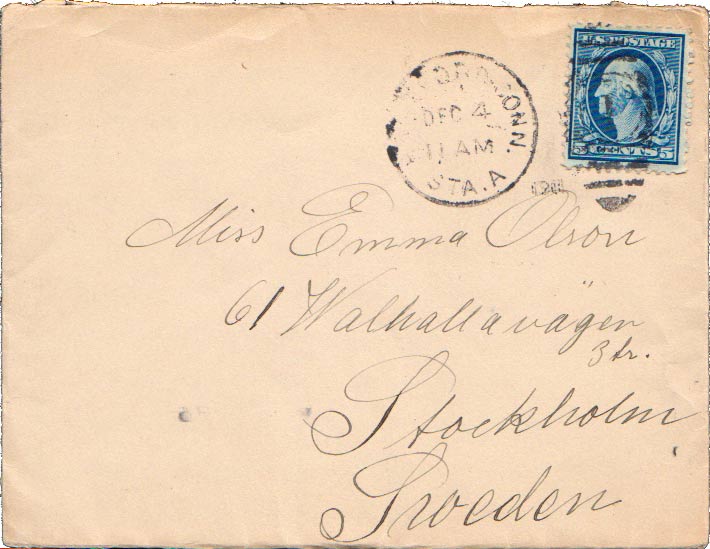 U.S. POSTAGE
5 CENTS 5
CONN.
DEC 4
11 AM
STA. A
Miss Emma Olson
61 Walhallavägen
3 tr.
Stockholm
Sweden